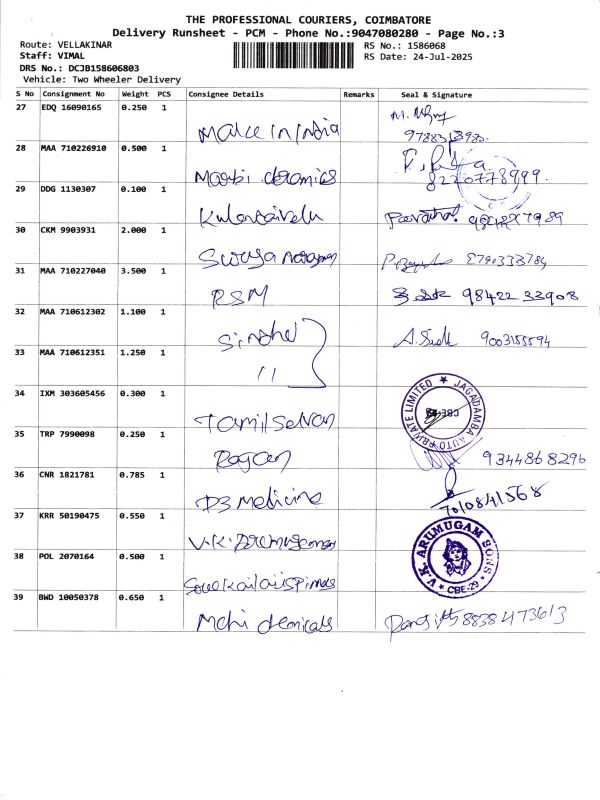 THE PROFESSIONAL COURIERS, COIMBATORE
Delivery Runsheet - PCM - Phone No.:9047080280 - Page No.:3
Route: VELLAKINAR RS No.: 1586068
Staff: VIMAL RS Date: 24-Jul-2025
DRS No.: DCJB158606803
Vehicle: Two Wheeler Delivery
S No Consignment No Weight PCS Consignee Details Remarks Seal & Signature
27 EDQ 16090165 0.250 1
Make in India
28 MAA 710226910 0.500 1
8220778999.
29 DDG 1130307 0.100 1
30 CKM 9903931 2.000 1
31 MAA 710227040 3.500 1
RSM 98422 33908
32 MAA 710612302 1.100 1
A. 9003155594
33 MAA 710612351 1.250 1
11
34 IXM 303605456 0.300 1
Tamilselvan
JAGADAMBA AUTO PRIVATE LIMITED
CBE
35 TRP 7990098 0.250 1
Rajan 9344868296
36 CNR 1821781 0.785 1
D3 medicine 7010841568
37 KRR 50190475 0.550 1
V.K.
V.K. ARUMUGAM SONS
CBE-29
38 POL 2070164 0.500 1
39 BWD 10050378 0.650 1
Mahi 8838473613